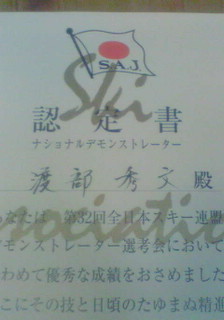 S.A.J
Ski
認定書
ナショナルデモンストレーター
渡部秀文殿
ssociatio
あなたは、第32回全日本スキー連盟
デモンストレーター選考会において
きわめて優秀な成績をおさめました
ここにその技と日頃のたゆまぬ精進